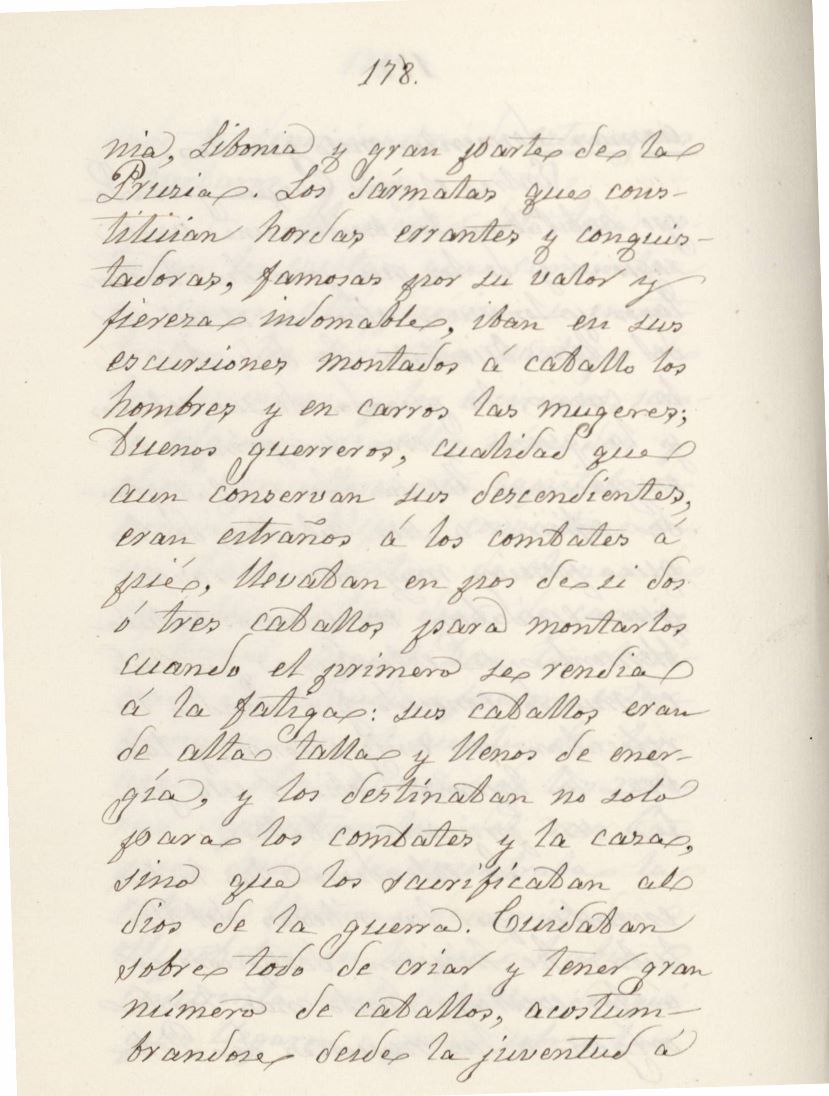 178.
nia, Libonia y gran parte de la
Prusia. Los Sármatas que cons-
tituian hordas errantes y conquis-
tadoras, famosas por su valor y
fiereza indomable, iban en sus
escursiones montados á caballo los
hombres y en carros las mugeres;
buenos guerreros, cualidad que
aun conservan sus descendientes,
eran estraños á los combates á
pié, llevaban en pos de si dos
ó tres caballos para montarlos
cuando el primero se rendia
á la fatiga: sus caballos eran
de alta talla y llenos de ener-
gía, y los destinaban no solo
para los combates y la caza,
sino que los sacrificaban al
dios de la guerra. Cuidaban
sobre todo de criar y tener gran
número de caballos, acostum-
brandose desde la juventud á